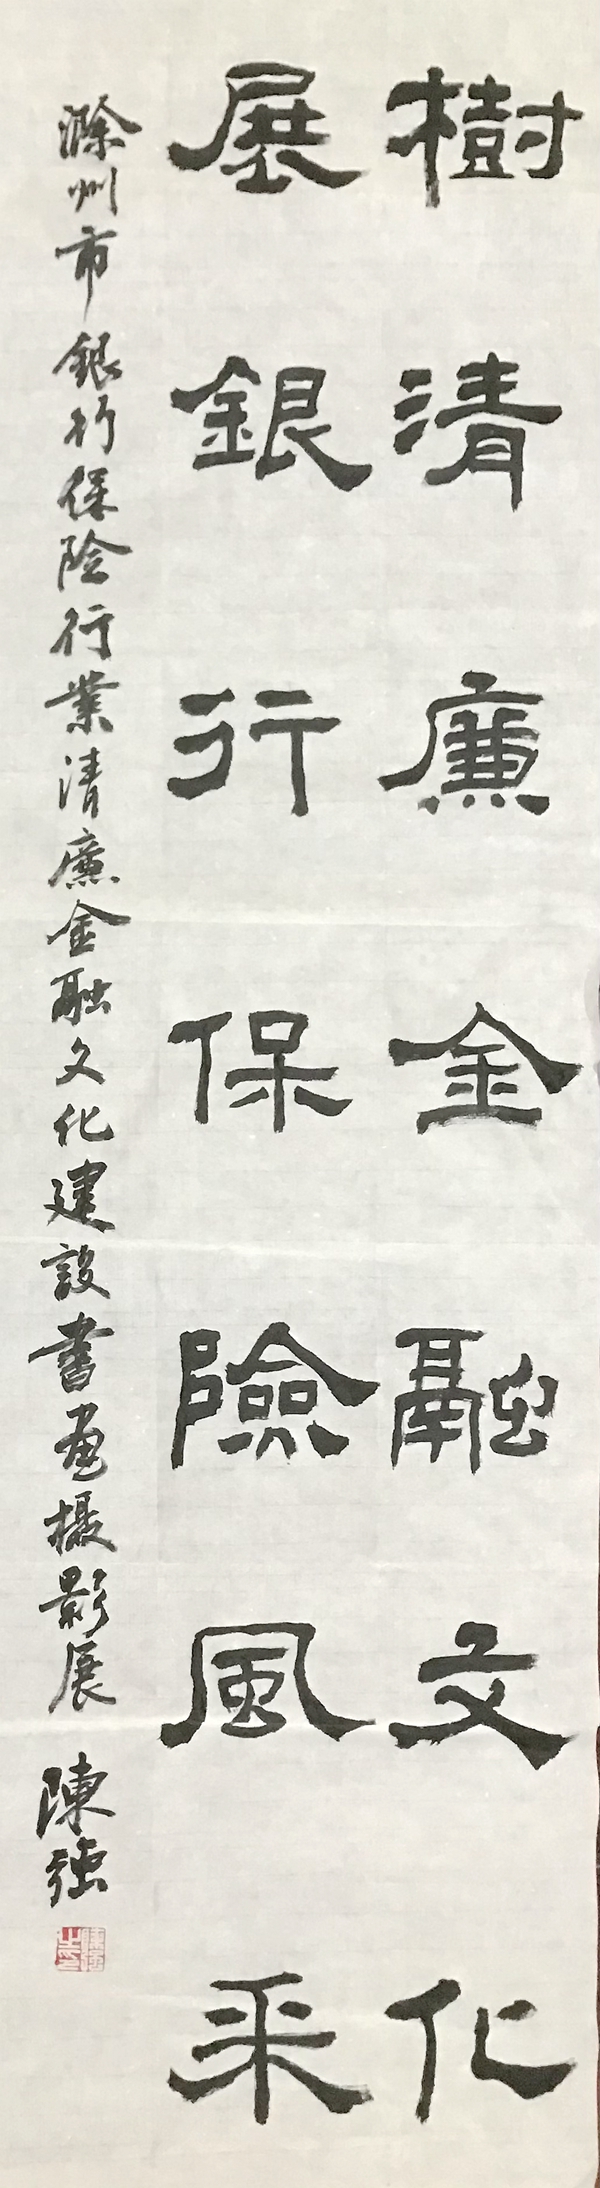 樹清廉金融文化
展銀行保險風采
滁州市銀行保险行業清廉金融文化建設書画摄影展 陳强